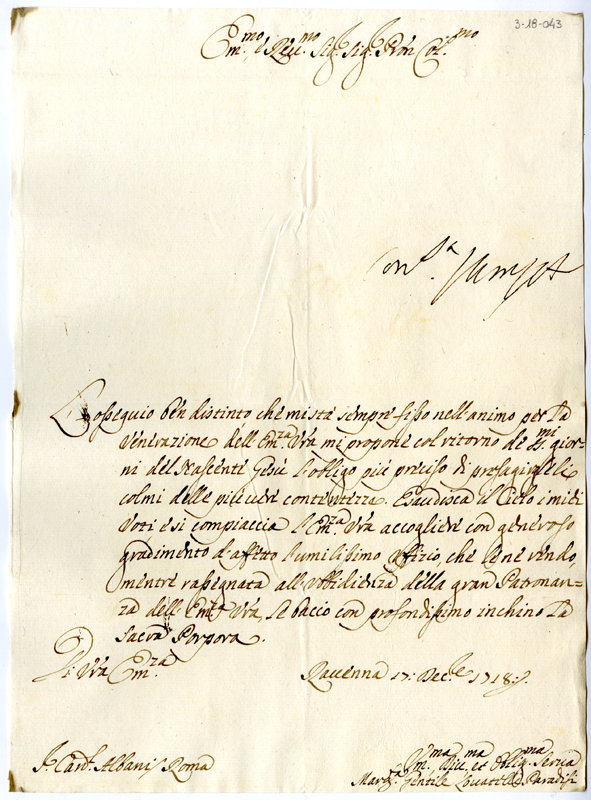 3-18-043
Em.mo, e Re.mo Sig.r Sig.r Pron Col.mo
L'ossequio ben distinto che mi stà sempre fisso nell'animo per la
Venerazione dell'Em.za Vrà mi propone col ritorno de SS.mi gior-
ni del Nascente Gesù l'obligo più preciso di presagirgleli
colmi delle più vere contentezza. Esaudisca il Cielo i miei
Voti e si compiaccia l'Em.za Vrà accogliere con generoso
gradimento d'affetto l'umilissimo Offizio, che le ne rendo,
mentre rassegnata all'Vbbidienza della gran Patronan-
za dell'Em.za Vrà, le bacio con profondissimo inchino la
Sacra Porpora.
Di Vrà Em.za
Ravenna 17: Dec.le 1718:
S. Card. Albani Roma
Vm.ma Div.ma et Oblig.ma Serva
Marg.ta Gentile Lovatelli Paradisi